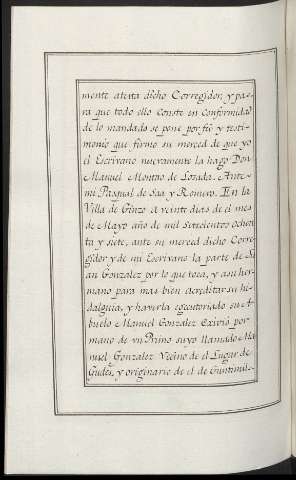 mente atenta dicho Corregidor, y pa-
ra que todo ello Conste en Conformidad
de lo mandado se pone por fée y testi-
monio que firmo su merced de que yo
el Escrivano nuevamente la hago Don
Manuel Montoo de Losada. Ante-
mi Pasqual de Saa y Romero. En la
Villa de Ginzo a veinte dias de el mes
de Mayo año de mil Setecientos ochen-
ta y siete, ante su merced dicho Corre-
gidor y de mi Escrivano la parte de Ju-
an Gonzalez por lo que toca, y asu her-
mano para mas bien acreditar su hi-
dalguia, y haverla egecutoriado su A-
buelo Manuel Gonzalez Exivió por
mano de vn Primo suyo llamado Ma-
nuel Gonzalez Vecino de el Lugar de
Gudes, y originario de el de Guntimil-